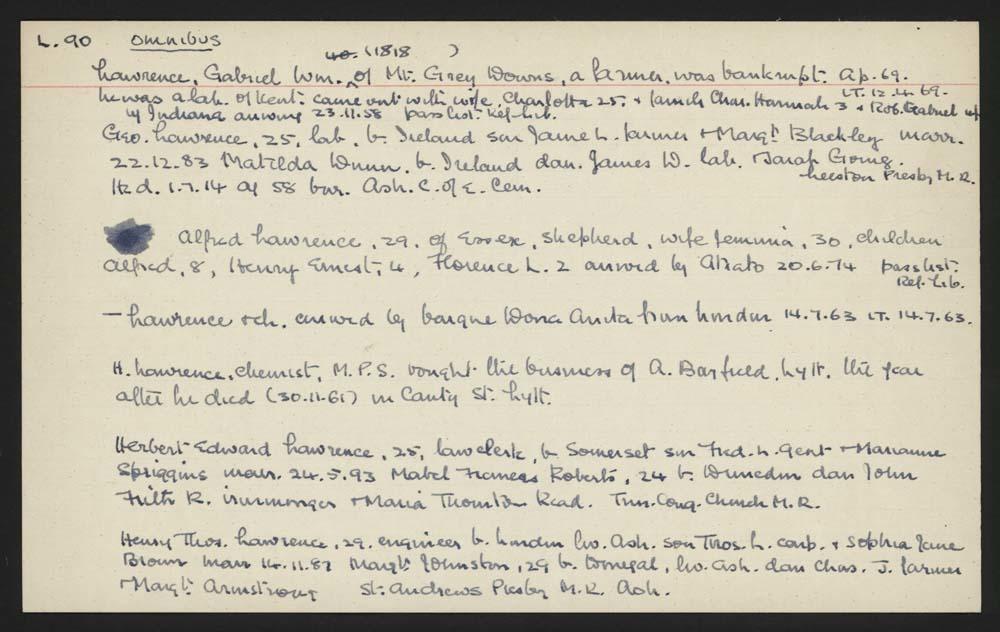 L.90 omnibus
40. (1818 )
Lawrence, Gabriel Wm. of Mt. Grey Downs, a farmer, was bankrupt. Ap. 69.
LT. 12.4.69.
he was a lab. of Kent. came out with wife, Charlotte 25. & family Chas. Hannah 3 & Rob. Gabriel inf
by Indiana arriving 23.11.58 passlist. Ref. Lib.
Geo. Lawrence, 25, lab. b. Ireland son James L. farmer & Margt. Blackley marr.
22.12.83 Matilda Wunn. b. Ireland dau. James W. lab. & Sarah Going.
Leeston Presby M.R.
He d. 1.7.14 ag 58 bur. Ash. C. of E. Cem.
Alfred Lawrence, 29, of Essex, shepherd, wife Jemima, 30, children
Alfred, 8, Henry Ernest, 4, Florence L. 2 arrived by Atrato 20.6.74 passlist.
Ref. Lib.
— Lawrence & ch. arrived by barque Dona Anita from London 14.7.63 LT. 14.7.63.
H. Lawrence, chemist, M.P.S. bought the business of A. Barfield, Lytt. the year
after he died (30.11.61) in Canty St. Lytt.
Herbert Edward Lawrence, 25, law clerk, b. Somerset son Fred. L. gent & Marianne
Spriggins marr. 24.5.93 Mabel Frances Roberts, 24 b. Dunedin dau John
Frith R. ironmonger & Maria Thornton Read. Trin. Cong. Church M.R.
Henry Thos. Lawrence, 29. engineer b. London liv. Ash. son Thos. L. carp. & Sophia Jane
Brown marr 14.11.87 Margt. Johnston, 29 b. Donegal, liv. Ash. dau Chas. J. farmer
& Margt. Armstrong St. Andrews Presby M.R. Ash.